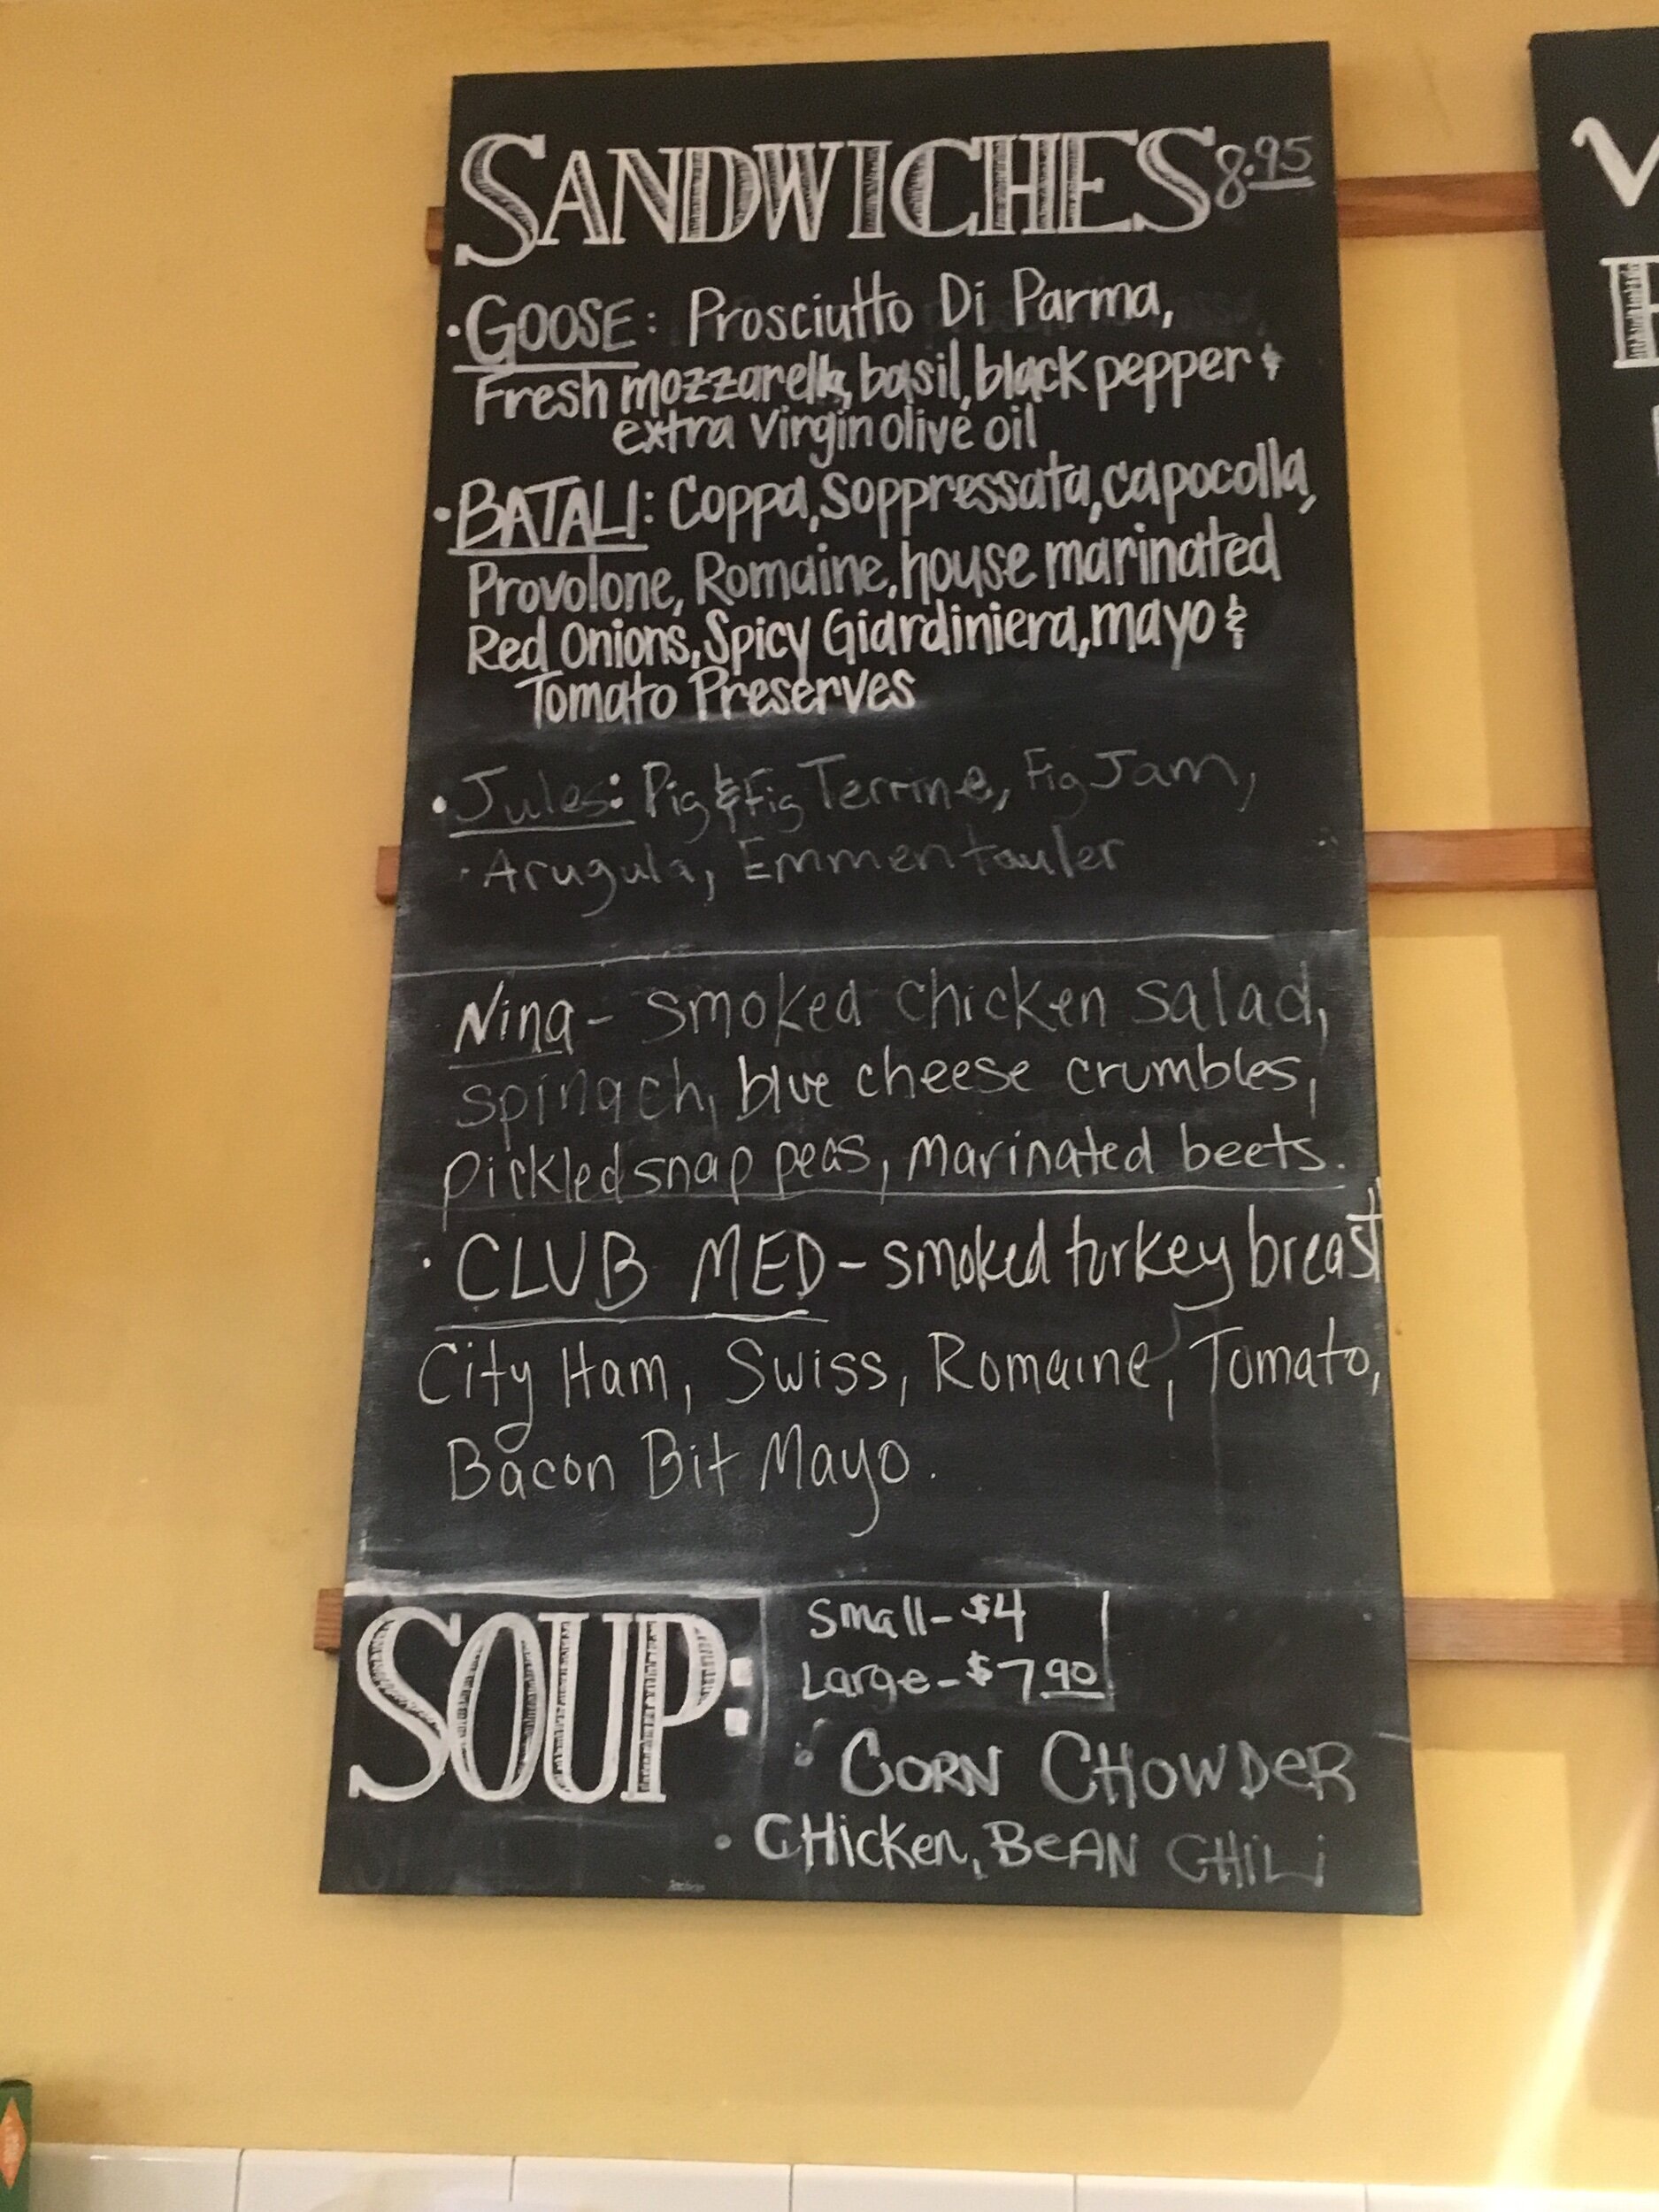 SANDWICHES 8.95
• GOOSE: Prosciutto Di Parma,
Fresh mozzarella, basil, black pepper &
extra virgin olive oil
• BATALI: Coppa, Soppressata, capocolla,
Provolone, Romaine, house marinated
Red Onions, Spicy Giardiniera, mayo &
Tomato Preserves
• Jules: Pig & Fig Terrine, Fig Jam,
• Arugula, Emmentauler
Nina - smoked chicken salad,
spinach, blue cheese crumbles,
pickled snap peas, marinated beets.
• CLUB MED - smoked turkey breast
City Ham, Swiss, Romaine, Tomato,
Bacon Bit Mayo.
SOUP:
Small - $4
Large - $7.90
• CORN CHOWDeR
• CHicKen, BeAN CHiLi